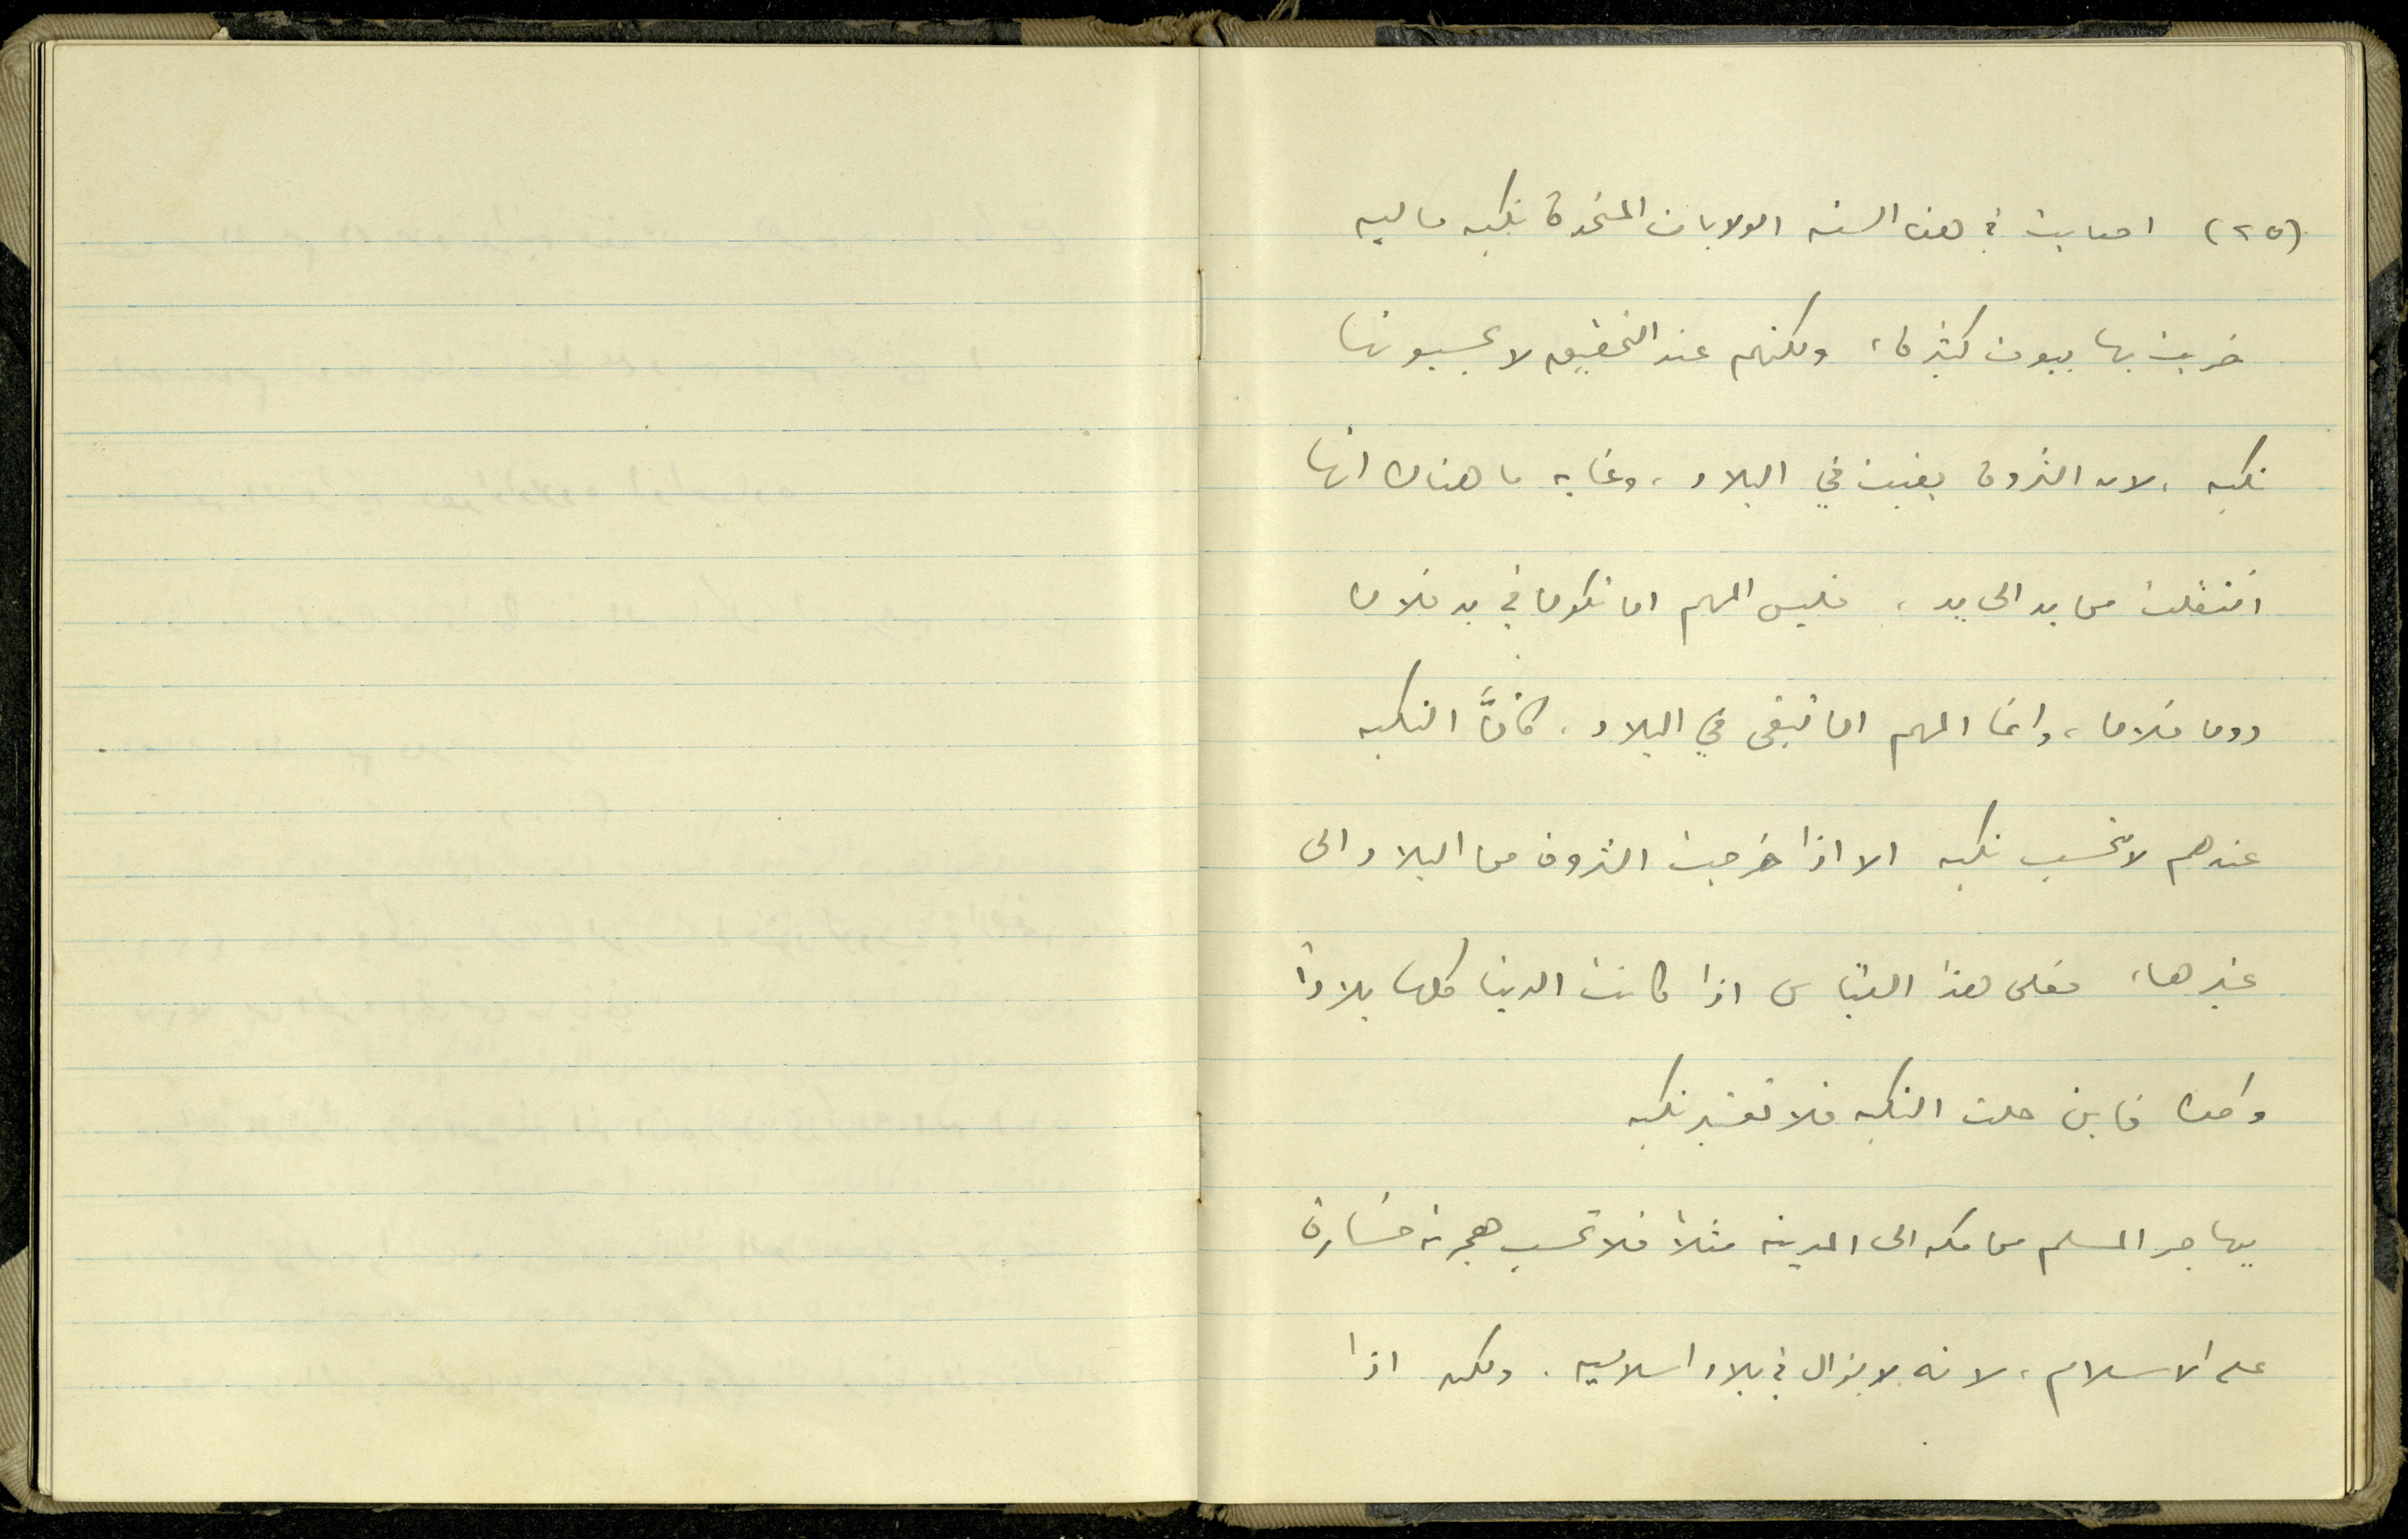 (٢٥) اصابت في هذه السنه الولايات المتحدة نكبه ماليه
خربت بها بيوت كثيرة، ولكنهم عند التحقيق لا يحسبونها
نكبه، لان الثروة بقيت في البلاد، وغايه ما هناك انها
انتقلت من يد الى يد، فليس المهم ان تكون في يد فلان
دون فلان، وانما المهم ان تبقى في البلاد، كأنَّ النكبه
عندهم لا تحسب نكبه الا اذا خرجت الثروة من البلاد الى
غيرها، فعلى هذا القياس اذا كانت الدنيا كلها بلادا
واحدة فاين حلت النكبه فلا تعتبر نكبه
يهاجر المسلم من مكه الى المدينه مثلاً فلا تحسب هجرته خسارة
على الاسلام، لانه لا يزال في بلاد اسلاميه. ولكن اذا